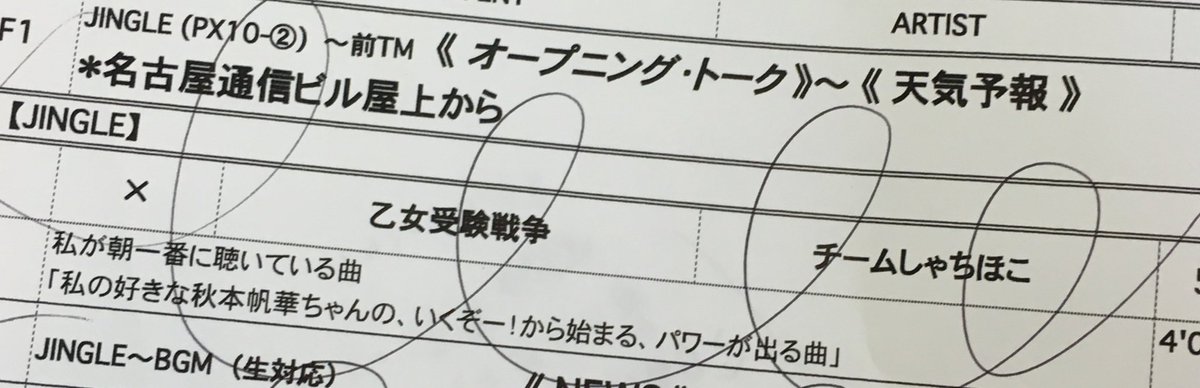 ARTIST
F1 JINGLE (PX10-②) ～前TM 《 オープニング・トーク》～《 天気予報 》
*名古屋通信ビル屋上から
【JINGLE】
× 乙女受験戦争 チームしゃちほこ
私が朝一番に聴いている曲
「私の好きな秋本帆華ちゃんの、いくぞー！から始まる、パワーが出る曲」
JINGLE～BGM (生対応)